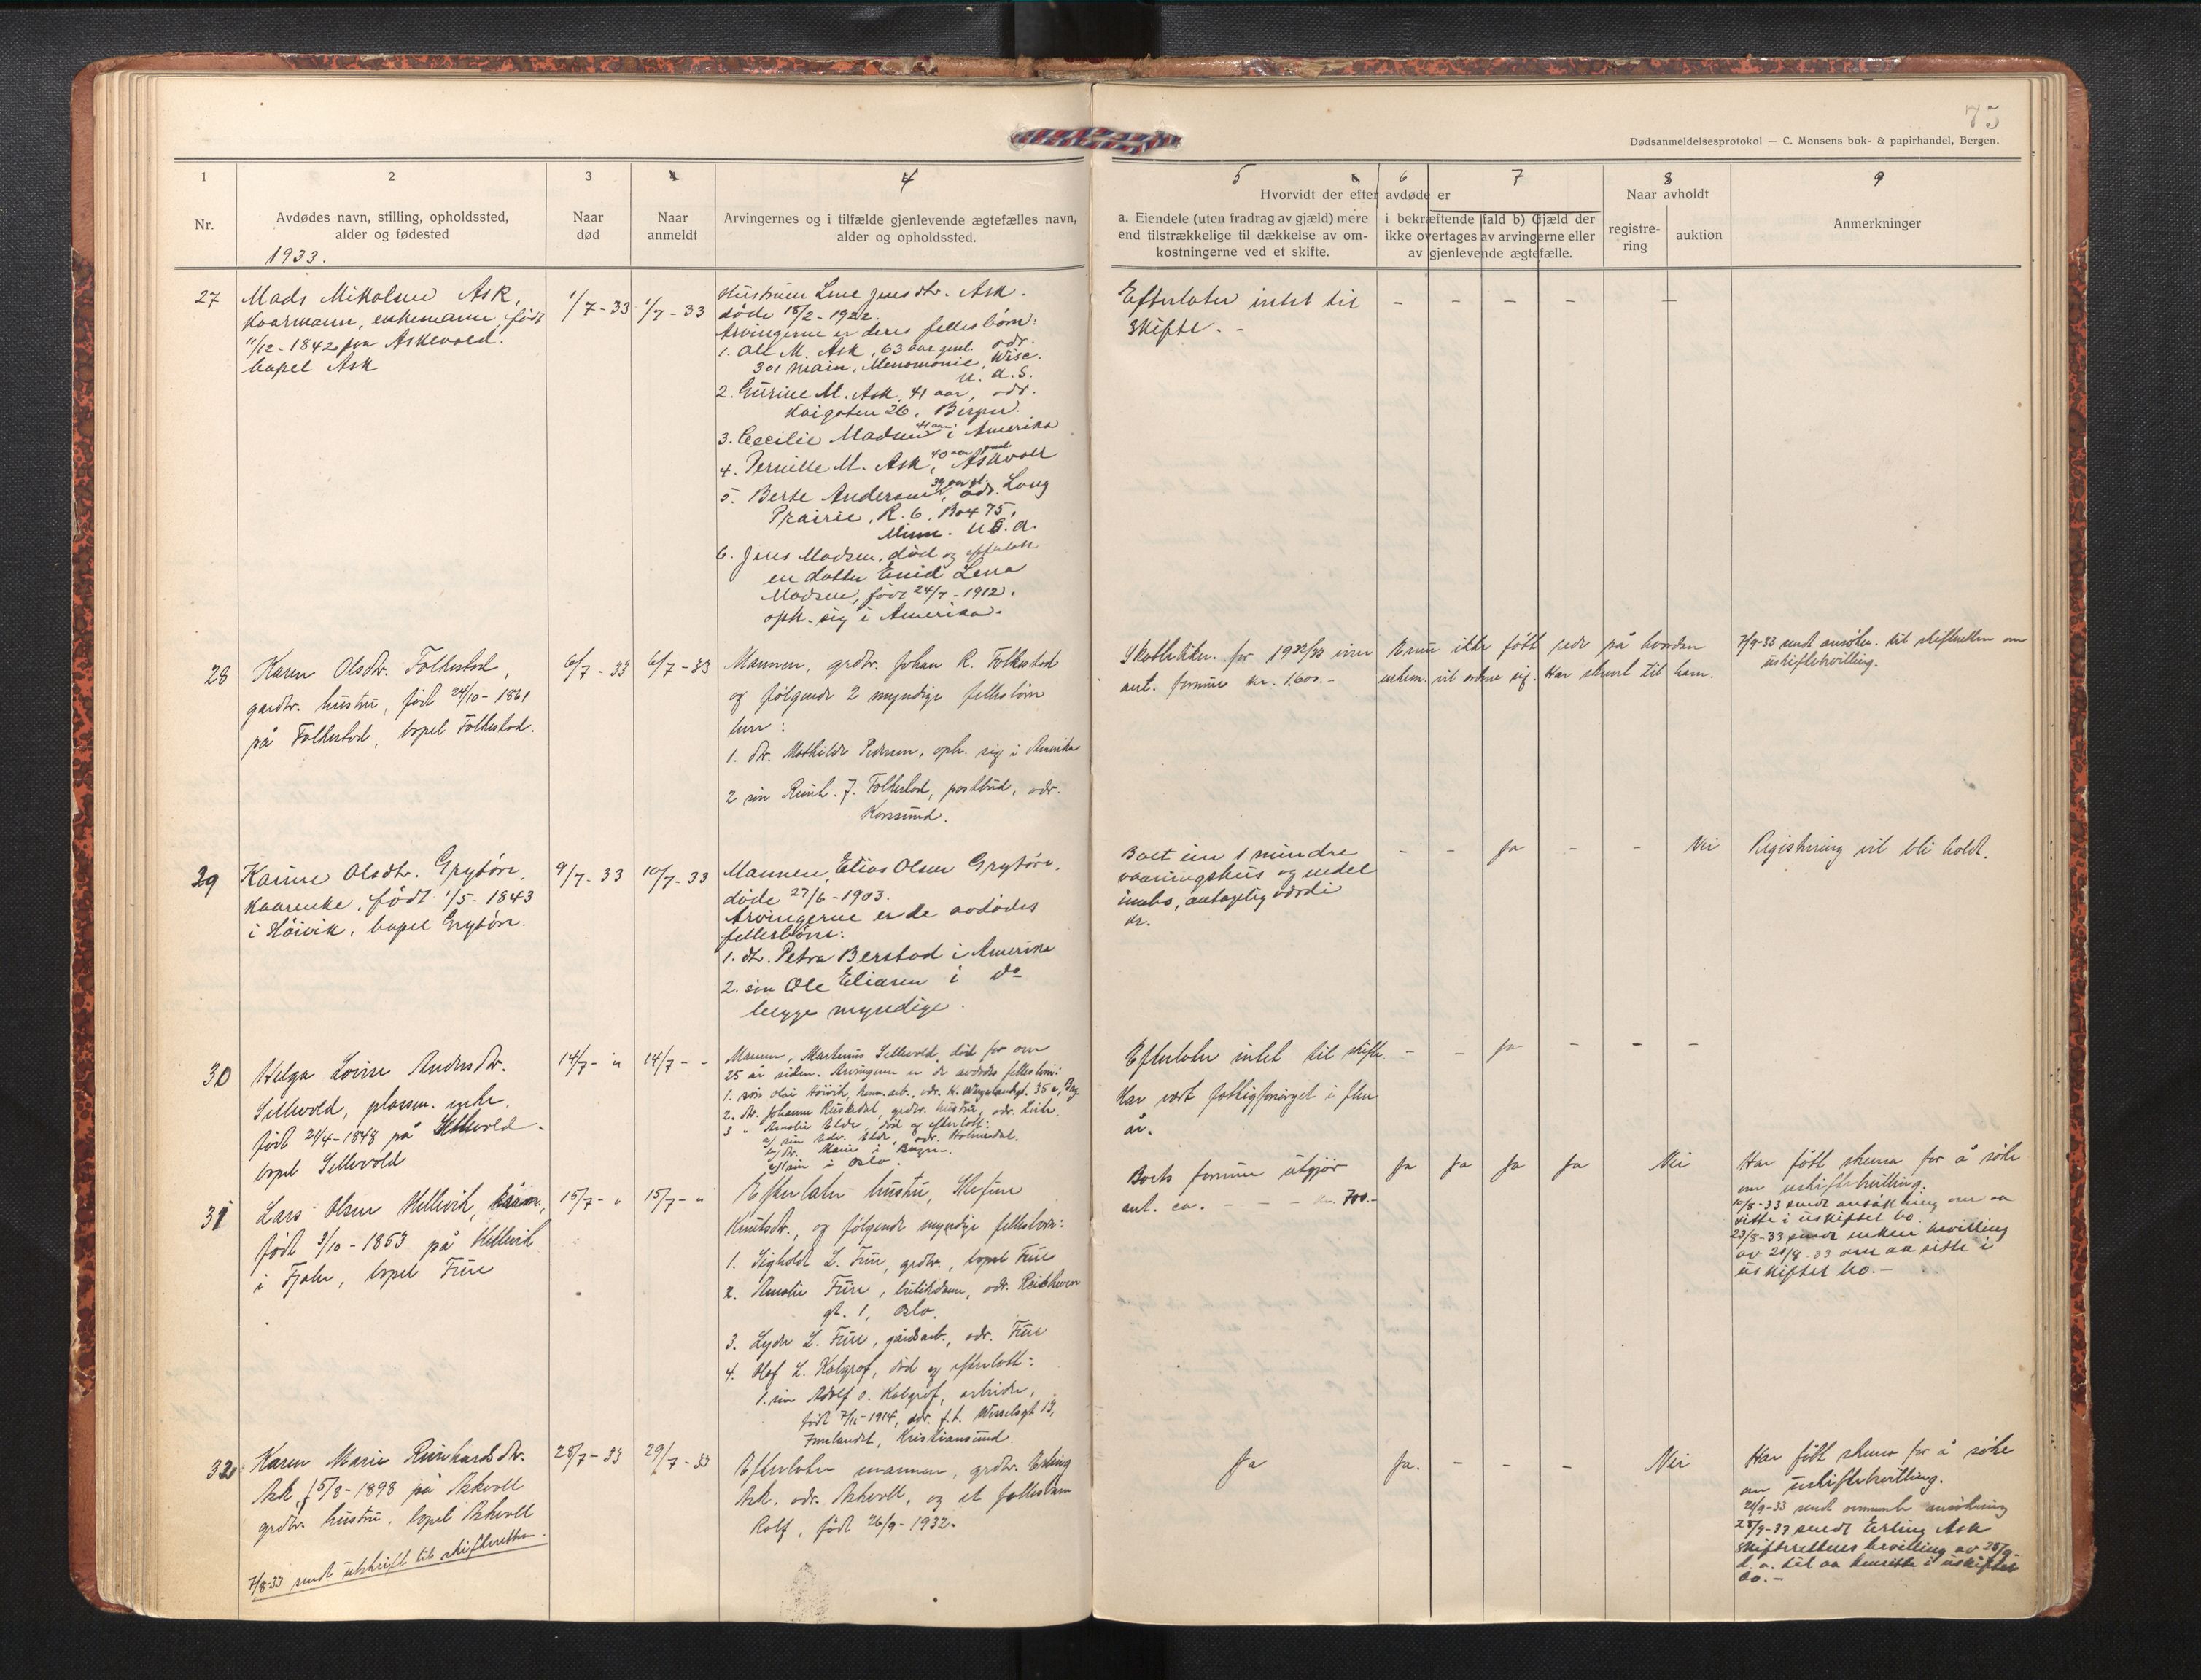 75
Dødsanmeldelsesprotokol — C. Monsens bok- & papirhandel, Bergen.
1 2 3 4 4 5 6 7 8 9
Nr.
Avdødes navn, stilling, opholdssted,
alder og fødested
Naar
død
Naar
anmeldt
Arvingernes og i tilfælde gjenlevende ægtefælles navn,
alder og opholdssted.
Hvorvidt der efter avdøde er
a. Eiendele (uten fradrag av gjæld) mere
end tilstrækkelige til dækkelse av om-
kostningerne ved et skifte.
i bekræftende fald b) Gjæld der
ikke overtages av arvingerne eller
av gjenlevende ægtefælle.
Naar avholdt
registre-
ring
auktion
Anmerkninger
1933.
27
Mads Mikalsen Ask,
Kaarmann, enkemann, født
11/12 - 1842 fra Askevold.
bopel Ask
1/7 - 33
1/7 - 33
Hustruen Lene Jensdtr. Ask.
døde 18/2 - 1922.
Arvingerne er deres fellesbørn:
1. Ole M. Ask, 63 aar gml. adr.
301 Main, Menomonie, Wisc.
U. A. S.
2. Gurine M. Ask, 41 aar, adr.
Kaigaten 26, Bergen.
3. Cecilie Madsen 41 aar i Amerika
4. Pernille M. Ask, 40 aar gml. Askvoll
5. Berte Andersen, 39 aar gl. adr. Long
Prairie, R. 6, Box 75,
Minn. U.S.A.
6. Jens Madsen, død og efterlatt
en datter Enid Lena
Madsen, født 24/7 - 1912.
oph. sig i Amerika.
Efterlater intet til
skifte. -
- - - - -
28
Karen Olsdtr. Folkestad,
gardbr. hustru, født 24/10 - 1861
på Folkestad, bopel Folkestad.
6/7 - 33
6/7 - 33
Mannen, grdbr. Johan R. Folkestad
og følgende 2 myndige fellesbörn
1. dtr. Mathilde Pedersen, oph. sig i Amerika
2 sön Reinh. J. Folkestad, postbud, adr.
Korssund.
Skattelikn. for 1932/33 viser
ant. formue kr. 1600.-
Ennu ikke fått rede på hvordan
enkem. vil ordne sig. Har skrevet til ham.
7/9-33 sendt ansökn. til skifteretten om
uskiftebevilling.
29
Karine Olsdtr. Grytöre,
Kaarenke, født 1/5 - 1843
i Höivik, bopel Grytöre.
9/7 - 33
10/7 - 33
Mannen, Elias Olsen Grytöre,
døde 27/6 - 1903.
Arvingerne er de avdödes
fellesbörn:
1. dtr. Petra Berstad i Amerika
2. sön Ole Eliasen i do
begge myndige.
Boet eier 1 mindre
vaaningshus og endel
innbo, antagelig værdi
kr.
- - ja - - Nei
Registrering vil bli holdt.
30
Helga Lovise Andersdtr.
Sellevold, plassm. enke,
født 21/4 - 1848 på Sellevold.
bopel Sellevold
14/7 - "
14/7 - -
Mannen, Martinus Sellevold, död for om
25 år siden. Arvingerne er de avdødes fellesbörn:
2. dtr. Johanne Rusdal, grdbr. hustru, adr.
3 " Amalie Elde, död og efterlatt:
a/ sön Edv. Elde, adr. Holmedal.
b/ dtr. Marie i Bergen.
c/ sön i Oslo.
Efterlater intet til skifte.
Har vært fattigforsörget i flere
år.
- - ja - - -
31
Lars Olsen Hellevik, kårm.,
født 3/10 - 1853 på Hellevik
i Fjaler, bopel Fure
15/7 - "
15/7 - "
Efterlater hustru,
Knutsdtr., og følgende myndige fellesbörn:
1. Sigvald L. Fure, grdbr., bopel Fure
2. Amalie Fure, butikdame, adr.
gt. 1, Oslo.
3. Lyder L. Fure, gårdsarb., adr. Fure
4. Olaf L. Kalgraf, död og efterlatt:
1. sön Adolf O. Kalgraf, arbeider,
født 7/11 - 1914, adr. f.t. Wesselsgt 13,
Innlandet, Kristiansund.
Boets formue utgjør
ant. ca. - - - kr. 700.-
ja ja ja ja Nei
Har fått skema for å söke
om uskiftebevilling.
10/8-33 sendt ansökning om aa
sitte i uskiftet bo
23/8-33 sendt enken bevilling
av 21/8-33 om aa sitte i
uskiftet bo. -
32
Karen Marie Reinhardsdtr.
Ask, f. 5/8 - 1898 på Askvoll
grdbr. hustru, bopel Askvoll
7/8-33 sendt utskrift til skifteretten.
28/7 - 33
29/7 - 33
Efterlater mannen, grdbr. Erling
Ask. adr. Askvoll, og et fellesbarn
Rolf, født 26/9 - 1932.
Ja
Ja. - - - Nei
Har fått skema for å söke
om uskiftebevilling.
21/9-33 sendt ansökning
28/9-33 sendt Erling Ask
skifterettens bevilling av 25/9
d. a. til aa hensitte i uskiftet
bo. -